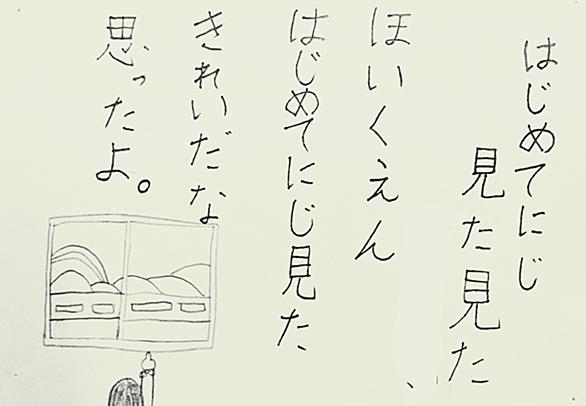 はじめてにじ
見た見た
ほいくえん
はじめてにじ見た
きれいだな
思ったよ。